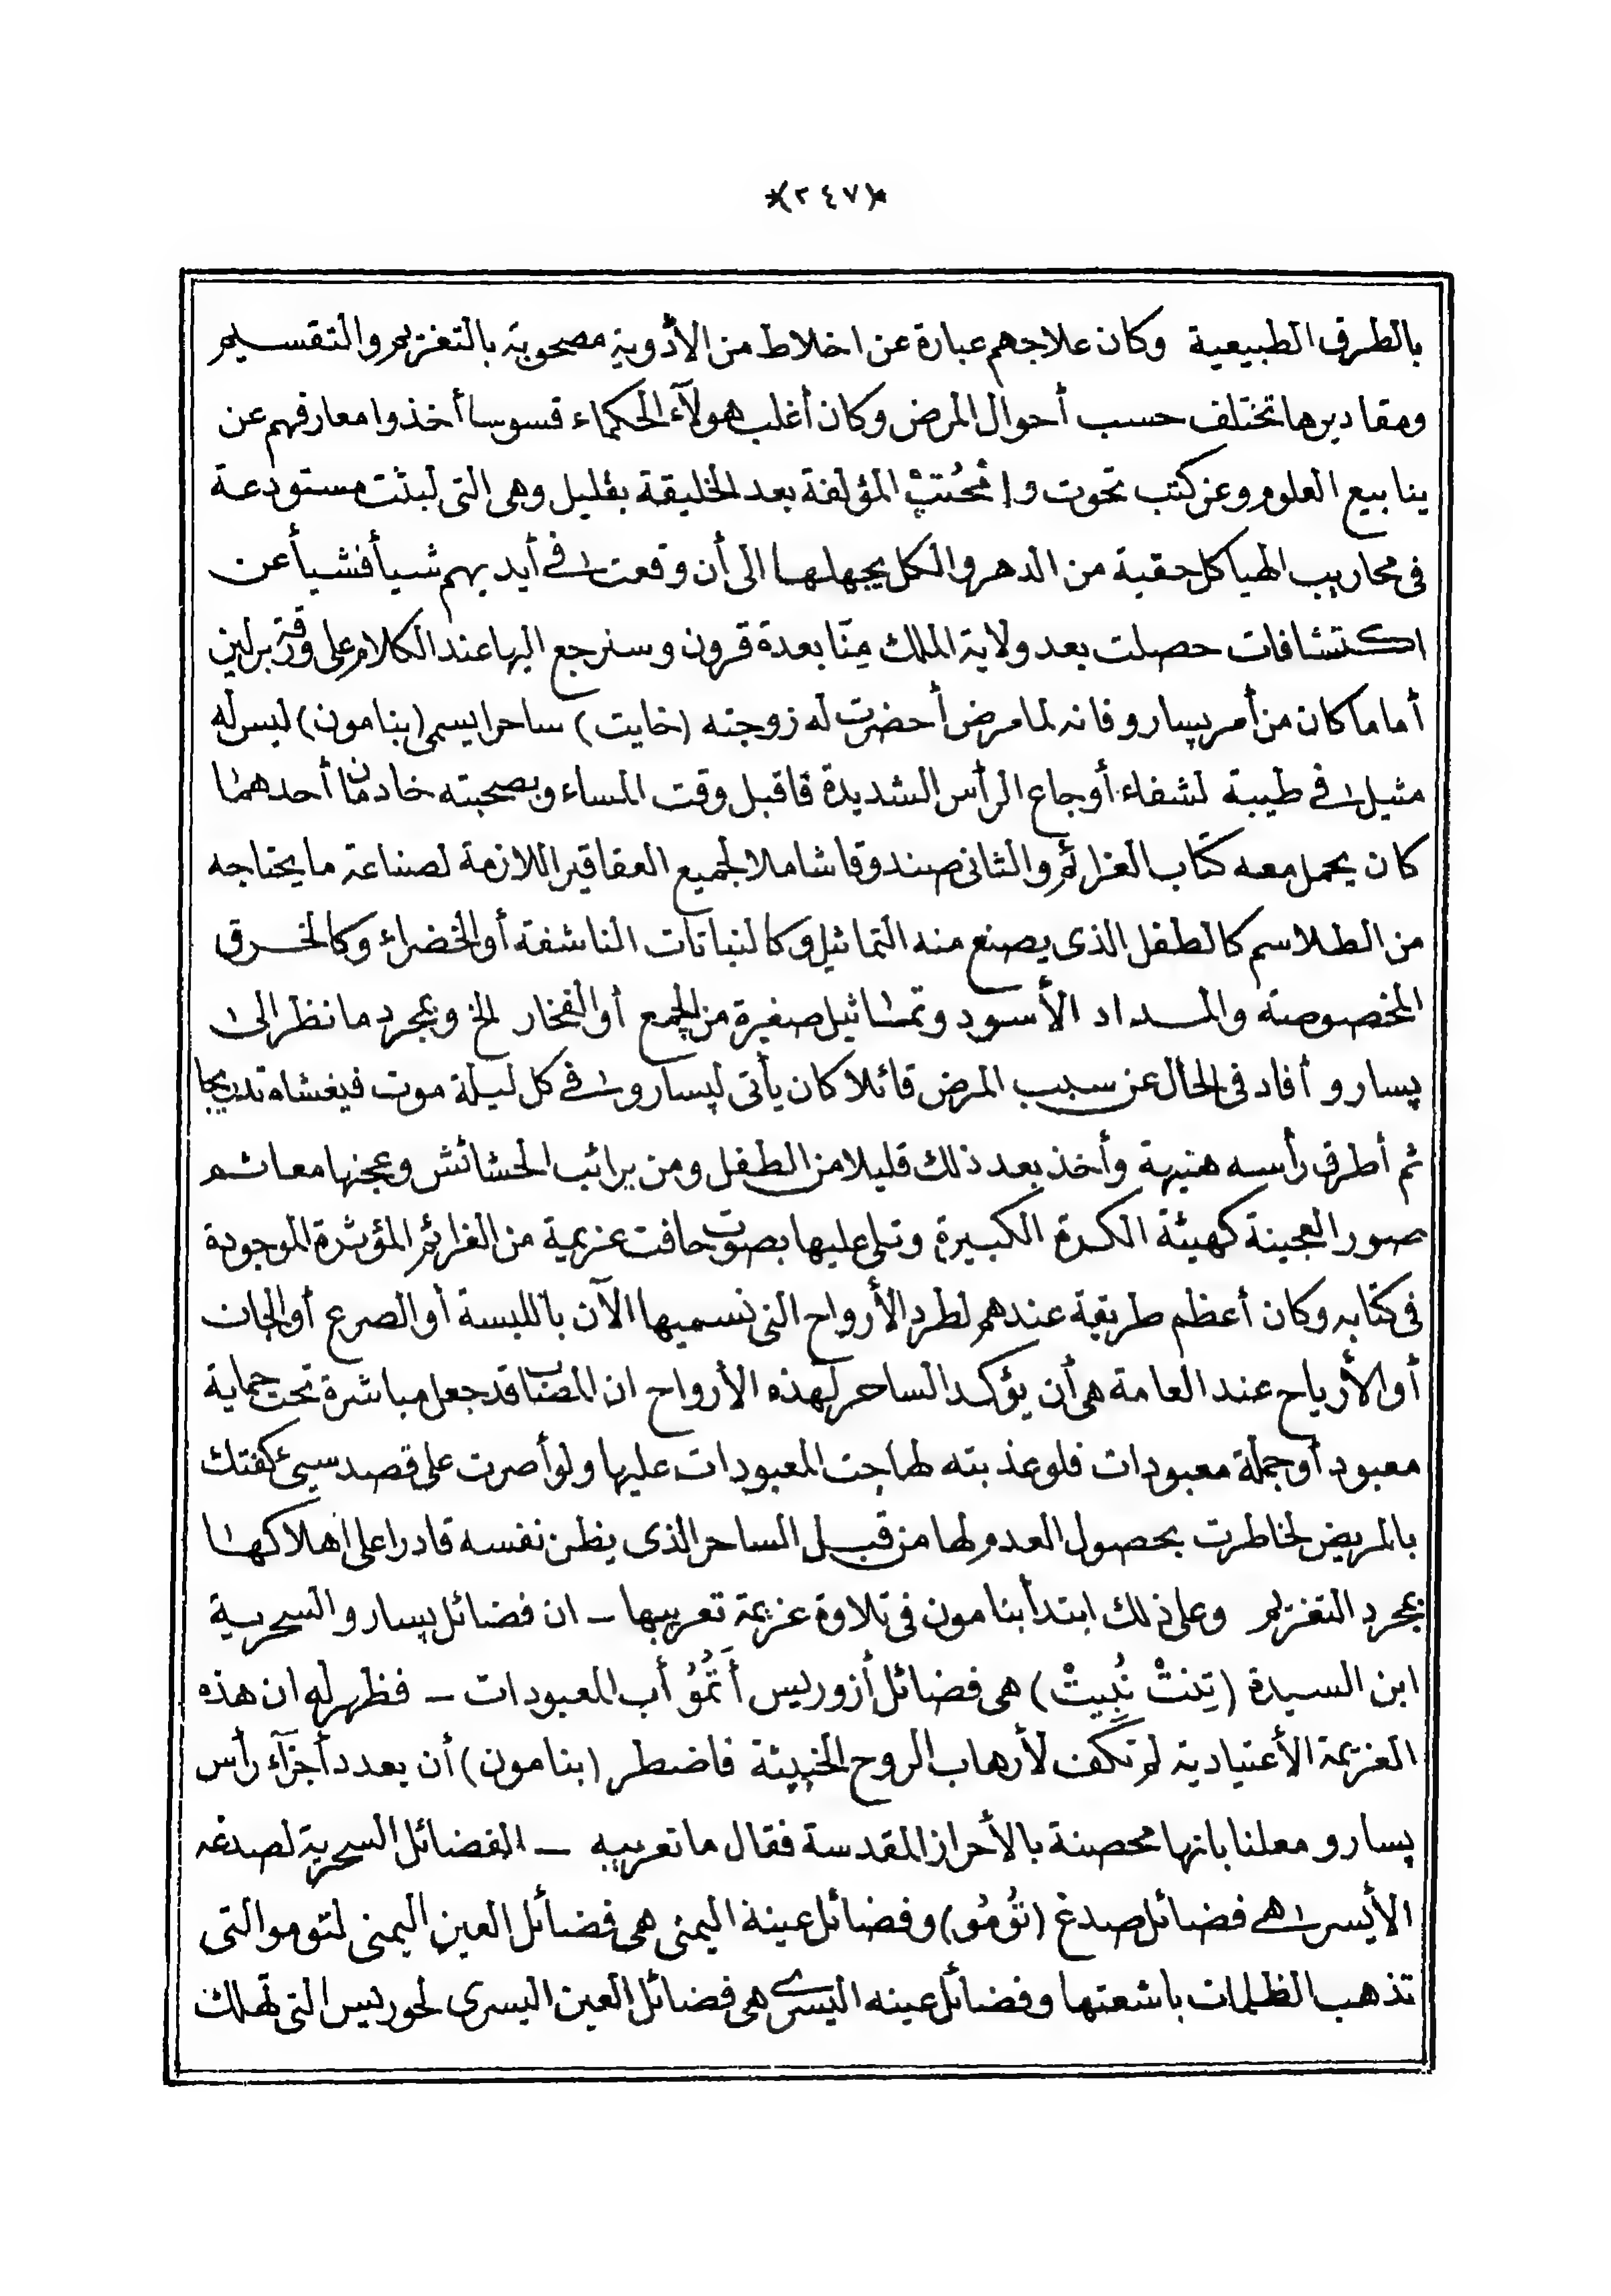 *(٢٤٧)*
بالطرق الطبيعية وكان علاجهم عبارة عن اخلاط من الأدوية مصحوبة بالتعزيم والتقسيم
ومقاديرها تختلف حسب أحوال المرض وكان أغلب هولآء الحكماء قسوسا أخذوا معارفهم عن
ينابيع العلوم وعن كتب تحوت و المؤلفة بعد الخليقة بقليل وهي التي لبثت مستودعة
في محاريب الهياكل حقبة من الدهر والكل يجهلها الى أن وقعت في أيديهم شيأ فشيأ عن
اكتشافات حصلت بعد ولاية الملك مِنّا بعدة قرون وسنرجع اليها عند الكلام على ورقة برلين
أما ما كان من أمر پسارو فانه لما مرض أحضرت له زوجته (خايت) ساحرا يسمى (بنامون) ليس له
مثيل في طيبة لشفاء أوجاع الرأس الشديدة فاقبل وقت المساء وبصحبته خادمان أحدهما
كان يحمل معه كتاب العزائم والثاني صندوقا شاملا لجميع العقاقير اللازمة لصناعة ما يحتاجه
من الطلاسم كالطفل الذي يصنع منه التماثيل وكالنباتات الناشفة أو الخضراء وكالخرق
المخصوصة والمداد الأسود وتماثيل صغيرة من الشمع أو الفخار الخ وبمجرد ما نظر الى
پسارو أفاد في الحال عن سبب المرض قائلا كان يأتي لپسارو في كل ليلة موت فيغشاه تدريجا
ثم أطرق رأسه هنيهة وأخذ بعد ذلك قليلا من الطفل ومن برائب الحشائش وعجنها معا ثم
صور العجينة كهيئة الكرة الكبيرة وتلى عليها بصوت خافت عزيمة من العزائم المؤثرة الموجودة
في كتابه وكان أعظم طريقة عندهم لطرد الأرواح التي نسميها الآن باللبسة أو الصرع أو الجان
أو الأرياح عند العامة هي أن يؤكد الساحر لهذه الأرواح ان المصاب قد جعل مباشرة تحت حماية
معبود أو جملة معبودات فلو عذبته لهاجت المعبودات عليها ولو أصرت على قصد سيئ كفتك
بالمريض لخاطرت بحصول العدم لها من قبل الساحر الذي يظن نفسه قادرا على اهلاكها
بمجرد التعزيم وعلى ذلك ابتدأ بنامون في تلاوة عزيمة تعريبها — ان فضائل پسارو السحرية
ابن السيدة (تِنتْ نُبِيتْ) هي فضائل أزوريس أَتُمُو أب المعبودات — فظهر له ان هذه
العزيمة الأعتيادية لم تكف لأرهاب الروح الخبيثة فاضطر (بنامون) أن يعدد أجزآء رأس
پسارو معلنا بانها محصنة بالأحراز المقدسة فقال ما تعريبه — الفضائل السحرية لصدغه
الأيسر هي فضائل صدغ (تُومُو) وفضائل عينه اليمنى هي فضائل العين اليمنى لتومو التي
تذهب الظلمات باشعتها وفضائل عينه اليسرى هي فضائل العين اليسرى لحوريس التي تهلك